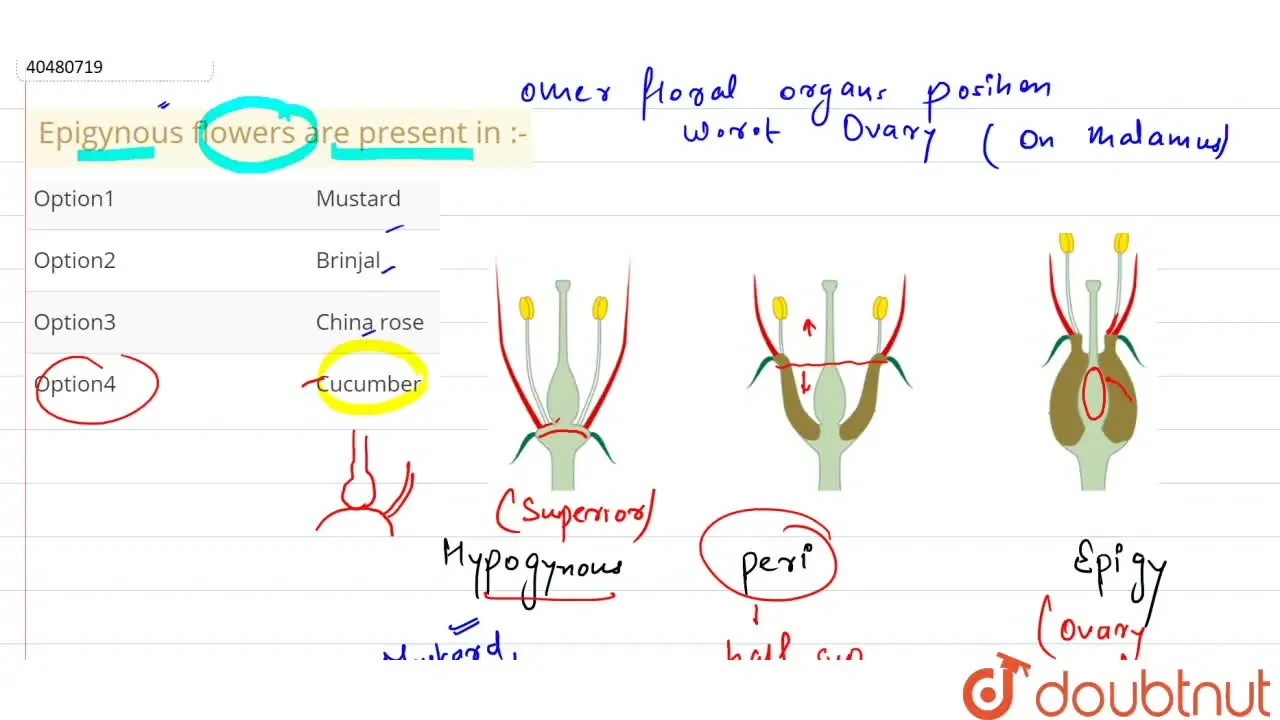 40480719
other floral organs position
worot Ovary (On thalamus)
Epigynous flowers are present in :-
Option1 Mustard
Option2 Brinjal
Option3 China rose
Option4 Cucumber
(Superior)
Hypogynous peri Epigy
(Ovary
Mustard,
half
doubtnut